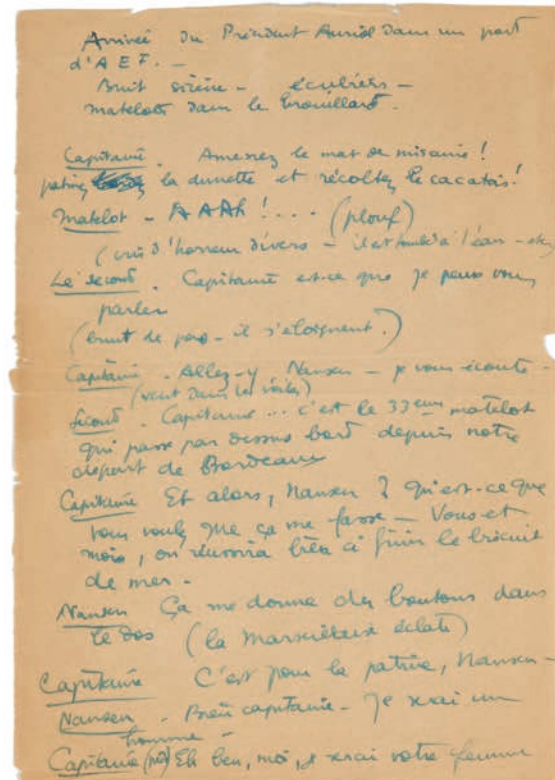 Arrivée du Président Auriol dans un port
d'A E F. -
Bruit sirène - écubiers -
matelots dans le brouillard.
Capitaine. Amenez le mat de misaine!
la dunette et récoltez le cacatois!
Matelot - AAAh!... (plouf)
(cris d'horreur divers - il est tombé à l'eau - etc)
Le second. Capitaine est-ce que je peux vous
parler
(bruit de pas - il s'éloignent.)
Capitaine. Allez-y Nansen - je vous écoute -
(vent dans les voiles)
Second. Capitaine... c'est le 33eme matelot
qui passe par dessus bord depuis notre
départ de Bordeaux
Capitaine Et alors, Nansen? qu'est-ce que
vous voulez que ça me fasse - Vous et
moi, on réussira bien à finir le biscuit
de mer -
Nansen Ça me donne des boutons dans
le dos (la Marseillaise éclate)
Capitaine C'est pour la patrie, Nansen -
Nansen. Bien capitaine - Je serai un
homme -
Capitaine Eh ben, moi, je serai votre femme